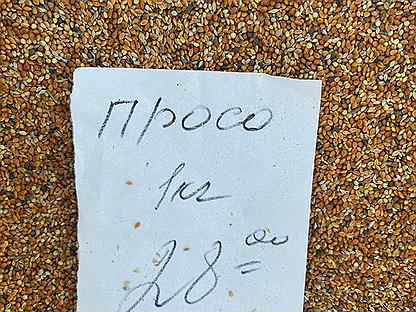 просо
1кг
28 00